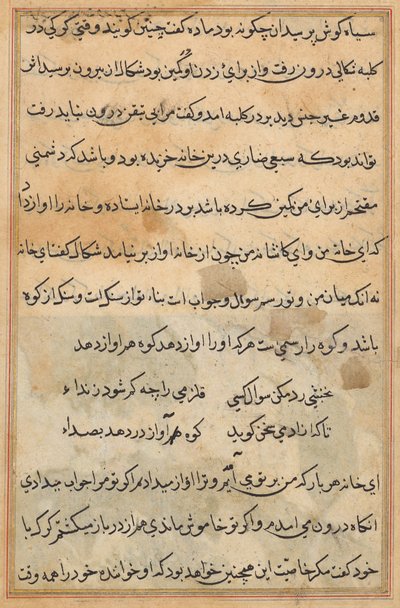 سیاه کوش پرسید ان چگونه بود ماده کفت چنین کویند وقتی کرکی در
کلبه شکالی درون رفت و از برای زدن او کمین بود شکال از بیرون برسید اثر
قدوم غیر جنس دید بر در کلبه امد و کفت مرا بی تیقن درون نباید رفت
تواند بود که سبعی ضاری درین خانه خزیده بود و باشد که دشمنی
مفتحم از برای من کمین کرده باشد بر در خانه ایستاده و خانه را اواز داد
که ای خانه من وای کاشانه من چون از خانه اواز بر نیامد شکال کفت ای خانه
نه انکه میان من و تو رسم سوال و جواب است بناء تو از سنک است و سنک از کوه
باشد و کوه را رسمی ست هر که او را اواز دهد کوه هم اواز دهد
نخشبی رد مکن سوال کسی قلزمی را چه کم شود ز نداء
تا که از ادمی سخن کوید کوه هم آواز در دهد بصداء
ای خانه هر بار که من بر تو می آیم و ترا اواز میدادم اکر تو مرا جواب میدادی
انکاه درون می امدم و اکر تو خاموش ماندی هم از در باز میکشتم کرک با
خود کفت مکر خاصیت این همچنین خواهد بود که او خواننده خود را همه وقت